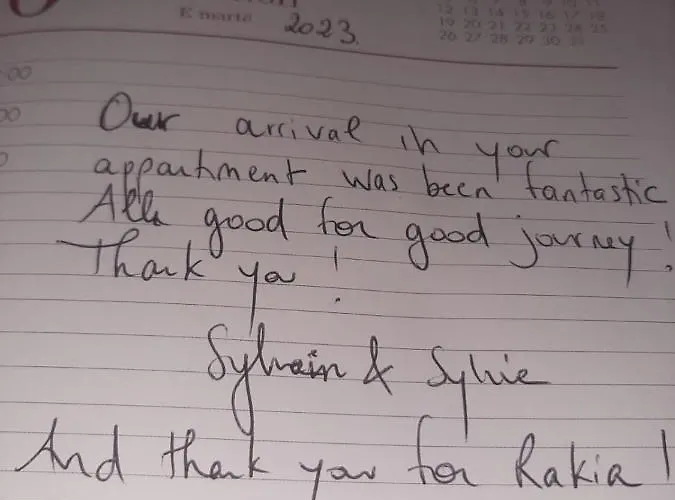 E martë 2023
12 13 14 15 16 17 18
19 20 21 22 23 24 25
26 27 28 29 30 31
00
00
Our arrival in your
appartment was been fantastic
All good for good journey!
Thank you!
Sylvain & Sylvie
And thank you for Rakia!